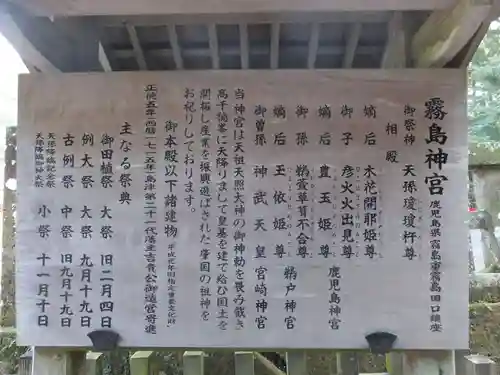 霧島神宮 鹿児島県霧島市霧島田口鎮座
御祭神 天孫瓊瓊杵尊
相殿
嫡后 木花開耶姫尊
御子 彦火火出見尊 鹿児島神宮
嫡后 豊玉姫尊
御孫 鵜鷀草葺不合尊 鵜戸神宮
嫡后 玉依姫尊
御曽孫 神武天皇 宮崎神宮
当神宮は天祖天照大神の御神勅を畏み戴きて
高千穂峯に天降りまして皇基を建て給ひ国土を
開拓し産業を振興遊ばされた肇国の祖神を
お祀りしております。
御本殿以下諸建物 平成元年国指定重要文化財
正徳五年(西暦一七一五年)島津第二十一代藩主吉貴公御造営寄進
主なる祭典
御田植祭 大祭 旧二月四日
例大祭 大祭 九月十九日
古例祭 中祭 旧九月十九日
天孫降臨記念祭
天孫降臨御神火祭 小祭 十一月十日